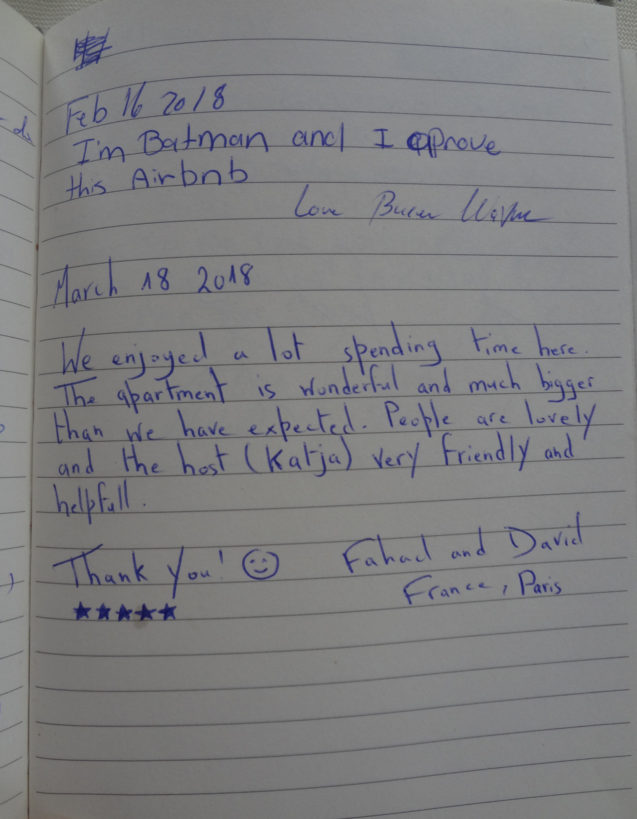 Feb 16 2018
I'm Batman and I aprove
this Airbnb
Love Wayne
March 18 2018
We enjoyed a lot spending time here.
The apartment is wonderful and much bigger
than we have expected. People are lovely
and the host (Katja) very friendly and
helpfull.
Thank you! ☺ Fahad and David
France, Paris
★★★★★